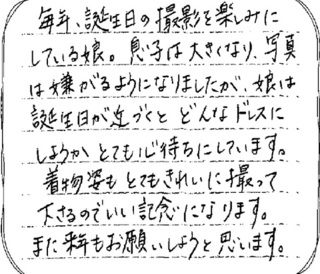 毎年、誕生日の撮影を楽しみに
している娘。息子は大きくなり、写真
は嫌がるようになりましたが、娘は
誕生日が近づくと どんなドレスに
しようか とても心待ちにしています。
着物姿も とてもきれいに撮って
下さるのでいい記念になります。
また来年もお願いしようと思います。